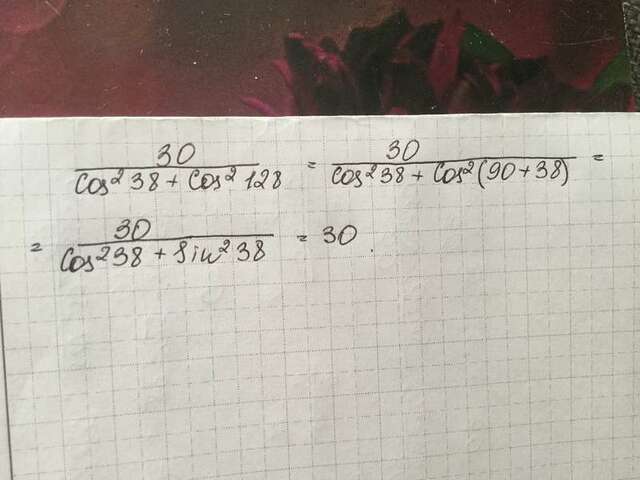 30 / (Cos² 38 + Cos² 128) = 30 / (Cos² 38 + Cos² (90 + 38)) =
= 30 / (Cos² 38 + Sin² 38) = 30.